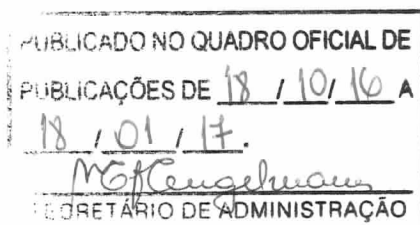 PUBLICADO NO QUADRO OFICIAL DE
PUBLICAÇÕES DE 18 / 10 / 16 A
18 / 01 / 17.
SECRETÁRIO DE ADMINISTRAÇÃO